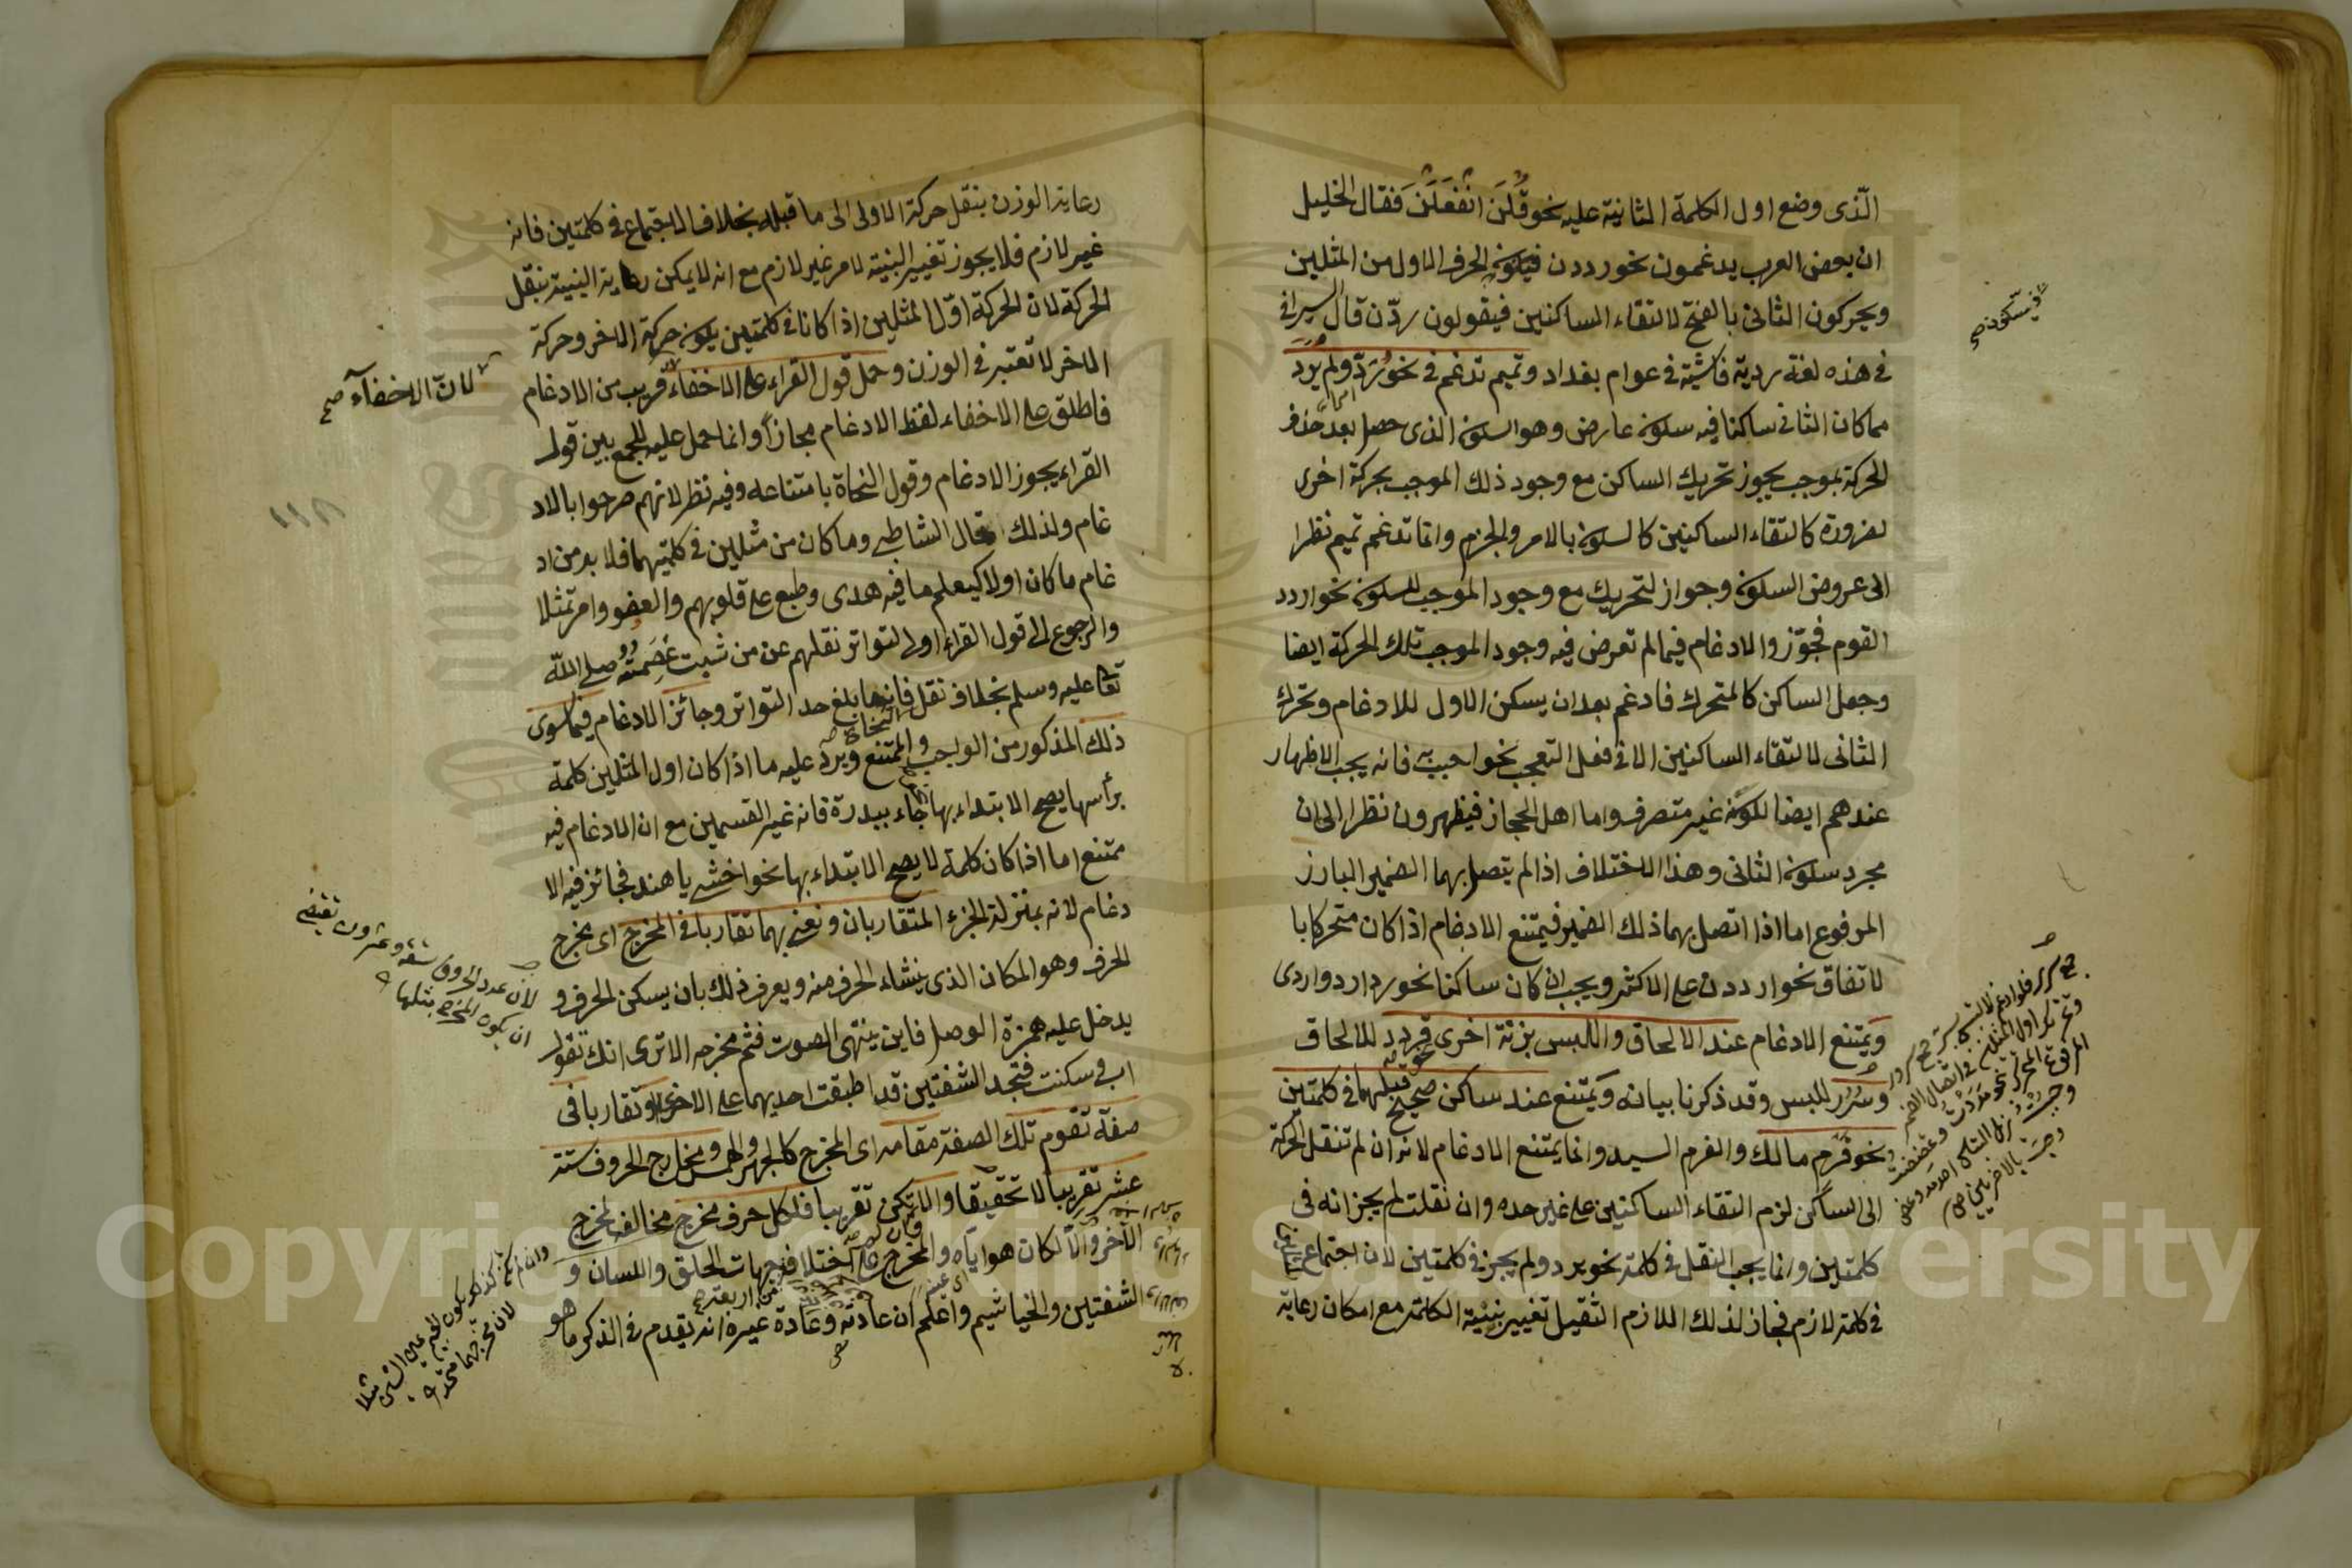 الّذى وضع اول الكلمة الثانية عليه نحو قُلَنَ انْفَعَلَنَ فقال الخليل
ان بعض العرب يدغمون نحو رددن فيكون الحرف الاول من المثلين
ويحركون الثانى بالفتح لالتقاء الساكنين فيقولون ردّن قال السيرافى
فى هذه لغة ردية فاشية فى عوام بغداد وتميم تدغم فى نحو رُدّ ولم يردّ
مما كان الثانى ساكنا فيه سكون عارض وهو السكون الذى حصل بعد حذف
الحركة بموجب يجوز تحريك الساكن مع وجود ذلك الموجب بحركة اخرى
لضرورة كالتقاء الساكنين كالسكون بالامر والجزم وانما تدغم تميم نظرا
الى عروض السكون وجواز التحريك مع وجود الموجب للسكون نحو اردد
القوم فجوّزوا الادغام فيما لم تعرض فيه وجود الموجب تلك الحركة ايضا
وجعل الساكن كالمتحرك فادغم بعد ان يسكن الاول للادغام وتحرك
الثانى لالتقاء الساكنين الا فى فعل التعجب نحو احبب به فانه يجب الاظهار
عندهم ايضا لكونه غير متصرف واما اهل الحجاز فيظهرون نظرا الى ان
مجرد سكون الثانى وهذا الاختلاف اذا لم يتصل بهما الضمير البارز
المرفوع اما اذا اتصل بهما ذلك الضمير فيمتنع الادغام اذا كان متحركا با
لاتفاق نحو ارددن على الاكثر ويجب ان كان ساكنا نحو ردا ردوا ردى
ويمتنع الادغام عند الالحاق واللبس بزنة اخرى نحو قردد للالحاق
وسُرُر للبس وقد ذكرنا بيانه ويمتنع عند ساكن صحيح قبلهما فى كلمتين
نحو قَرْم مالك والقرم السيد وانما يمتنع الادغام لانه ان لم تنقل الحركة
الى الساكن لزم التقاء الساكنين على غير حده وان نقلت لم يجز انه فى
كلمتين وانما يجب النقل فى كلمة نحو يرد ولم يجز فى كلمتين لان اجتماع
فى كلمة لازم فجاز لذلك اللازم الثقيل تغيير بنية الكلمة مع امكان رعاية
فيسكون صح
رعاية الوزن بنقل حركة الاولى الى ما قبله بخلاف الاجتماع فى كلمتين فانه
غير لازم فلا يجوز تغيير البنية لامر غير لازم مع انه لا يمكن رعاية البنية بنقل
الحركة لان الحركة اوّل المثلين اذا كانا فى كلمتين يكون حركة الاخر وحركة
الاخر لا تعتبر فى الوزن وحمل قول القراء على الاخفاء قريب من الادغام
لانّ الاخفآء صح
فاطلق على الاخفاء لفظ الادغام مجازاً وانما حمل عليه للجمع بين قول
القراء يجوز الادغام وقول النحاة بامتناعه وفيه نظر لانهم صرحوا بالاد
١١٨
غام ولذلك قال الشاطبى وما كان من مثلين فى كلمتيهما فلا بد من اد
غام ما كان اولا كيعلم ما فيه هدى وطبع على قلوبهم والعفو وامر تمثلا
والرجوع الى قول القراء اولى لتواتر نقلهم عن من ثبت عِصْمَتُهُ صلى اللّه
تعا عليه وسلم بخلاف نقل النحاة فانه ما بلغ حد التواتر وجائز الادغام فيما سوى
ذلك المذكور من الواجب والممتنع ويرد عليه ما اذا كان اول المثلين كلمة
برأسها يصح الابتداء بها جاء ببدرة فانه غير القسمين مع ان الادغام فيه
ممتنع اما اذا كان كلمة لا يصح الابتداء بها نحو اخشى يا هند فجائز فيه الا
دغام لانه بمنزلة الجزء المتقاربان ونعنى بهما تقاربا فى المخرج اى مخرج
الحرف وهو المكان الذى ينشاء الحرف منه ويعرف ذلك بان يسكن الحرف و
يدخل عليه همزة الوصل فاين ينتهى الصوت فثم مخرجه الا ترى انك تقول
اب وسكنت فتجد الشفتين قد اطبقت احديهما على الاخرى او تقاربا فى
صفة تقوم تلك الصفة مقامه اى المخرج كالجهر والهمس ومخارج الحروف ستة
عشر تقريبا لا تحقيقا والا تكن تقريبا فلكل حرف مخرج مخالف لمخرج
الآخر والّا لكان هو ايّاه والمخرج على اختلافه من جهات الحلق واللسان و
الشفتين والخياشيم واعلم ان عادته وعادة غيره انه يقدم فى الذكر ما هو
لان عدد الحروف تسعة وعشرون تقتضى
ان يكون المخرج مثلها
لان مخرجهما متحد